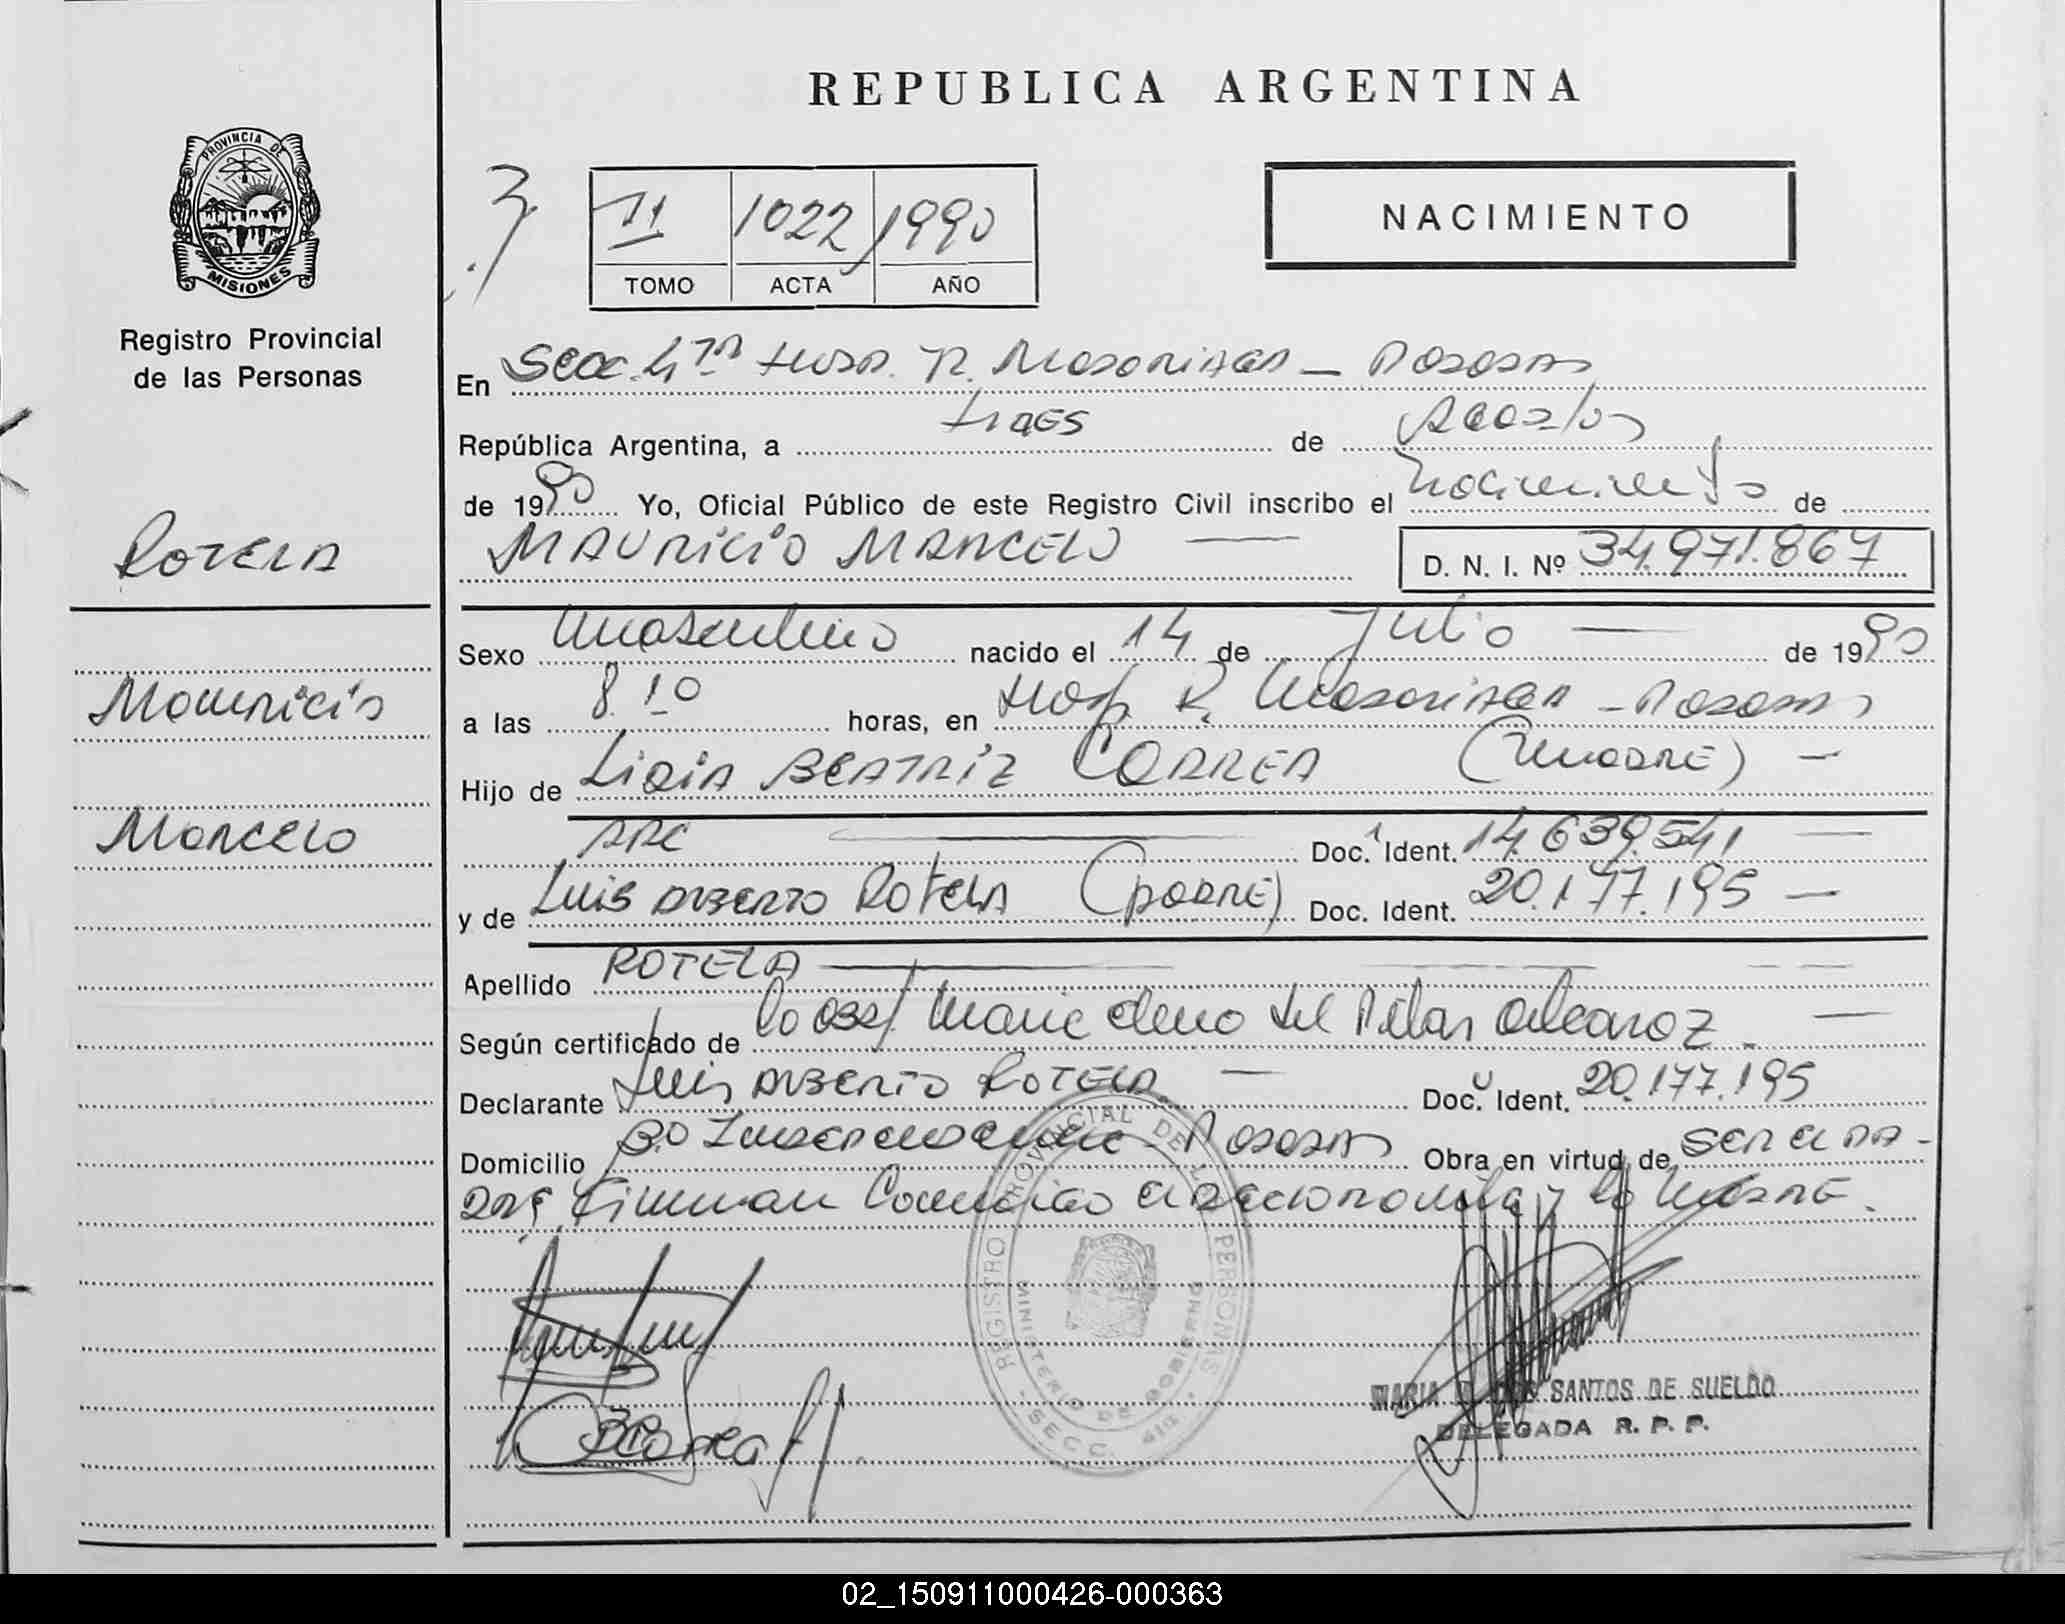 REPUBLICA ARGENTINA
PROVINCIA DE MISIONES
Registro Provincial
de las Personas
II 1022 1990
TOMO ACTA AÑO
NACIMIENTO
En Secc. 4ta Hosp. R. Madariaga - Posadas
República Argentina, a tres de Agosto
de 1990 Yo, Oficial Público de este Registro Civil inscribo el nacimiento de
MAURICIO MARCELO
D. N. I. Nº 34.971.867
ROTELA
Mauricio
Marcelo
Sexo masculino nacido el 14 de Julio de 1990
a las 8.10 horas, en Hosp R. Madariaga - Posadas
Hijo de Ligia BEATRIZ CORREA (madre)
ARG Doc. Ident. 14.639.541
y de Luis ALBERTO ROTELA (PADRE) Doc. Ident. 20.177.195
Apellido ROTELA
Según certificado de la obst Maria del Pilar
Declarante Luis ALBERTO ROTELA Doc. Ident. 20.177.195
Domicilio Bº Posadas Obra en virtud de SER EL PA-
DRE. Firman Conmigo el y la MADRE.
REGISTRO PROVINCIAL DE LAS PERSONAS
MINISTERIO DE GOBIERNO
SECC. 4ta
BCorrea
MARIA SANTOS DE SUELDO
DELEGADA R. P. P.
02_150911000426-000363